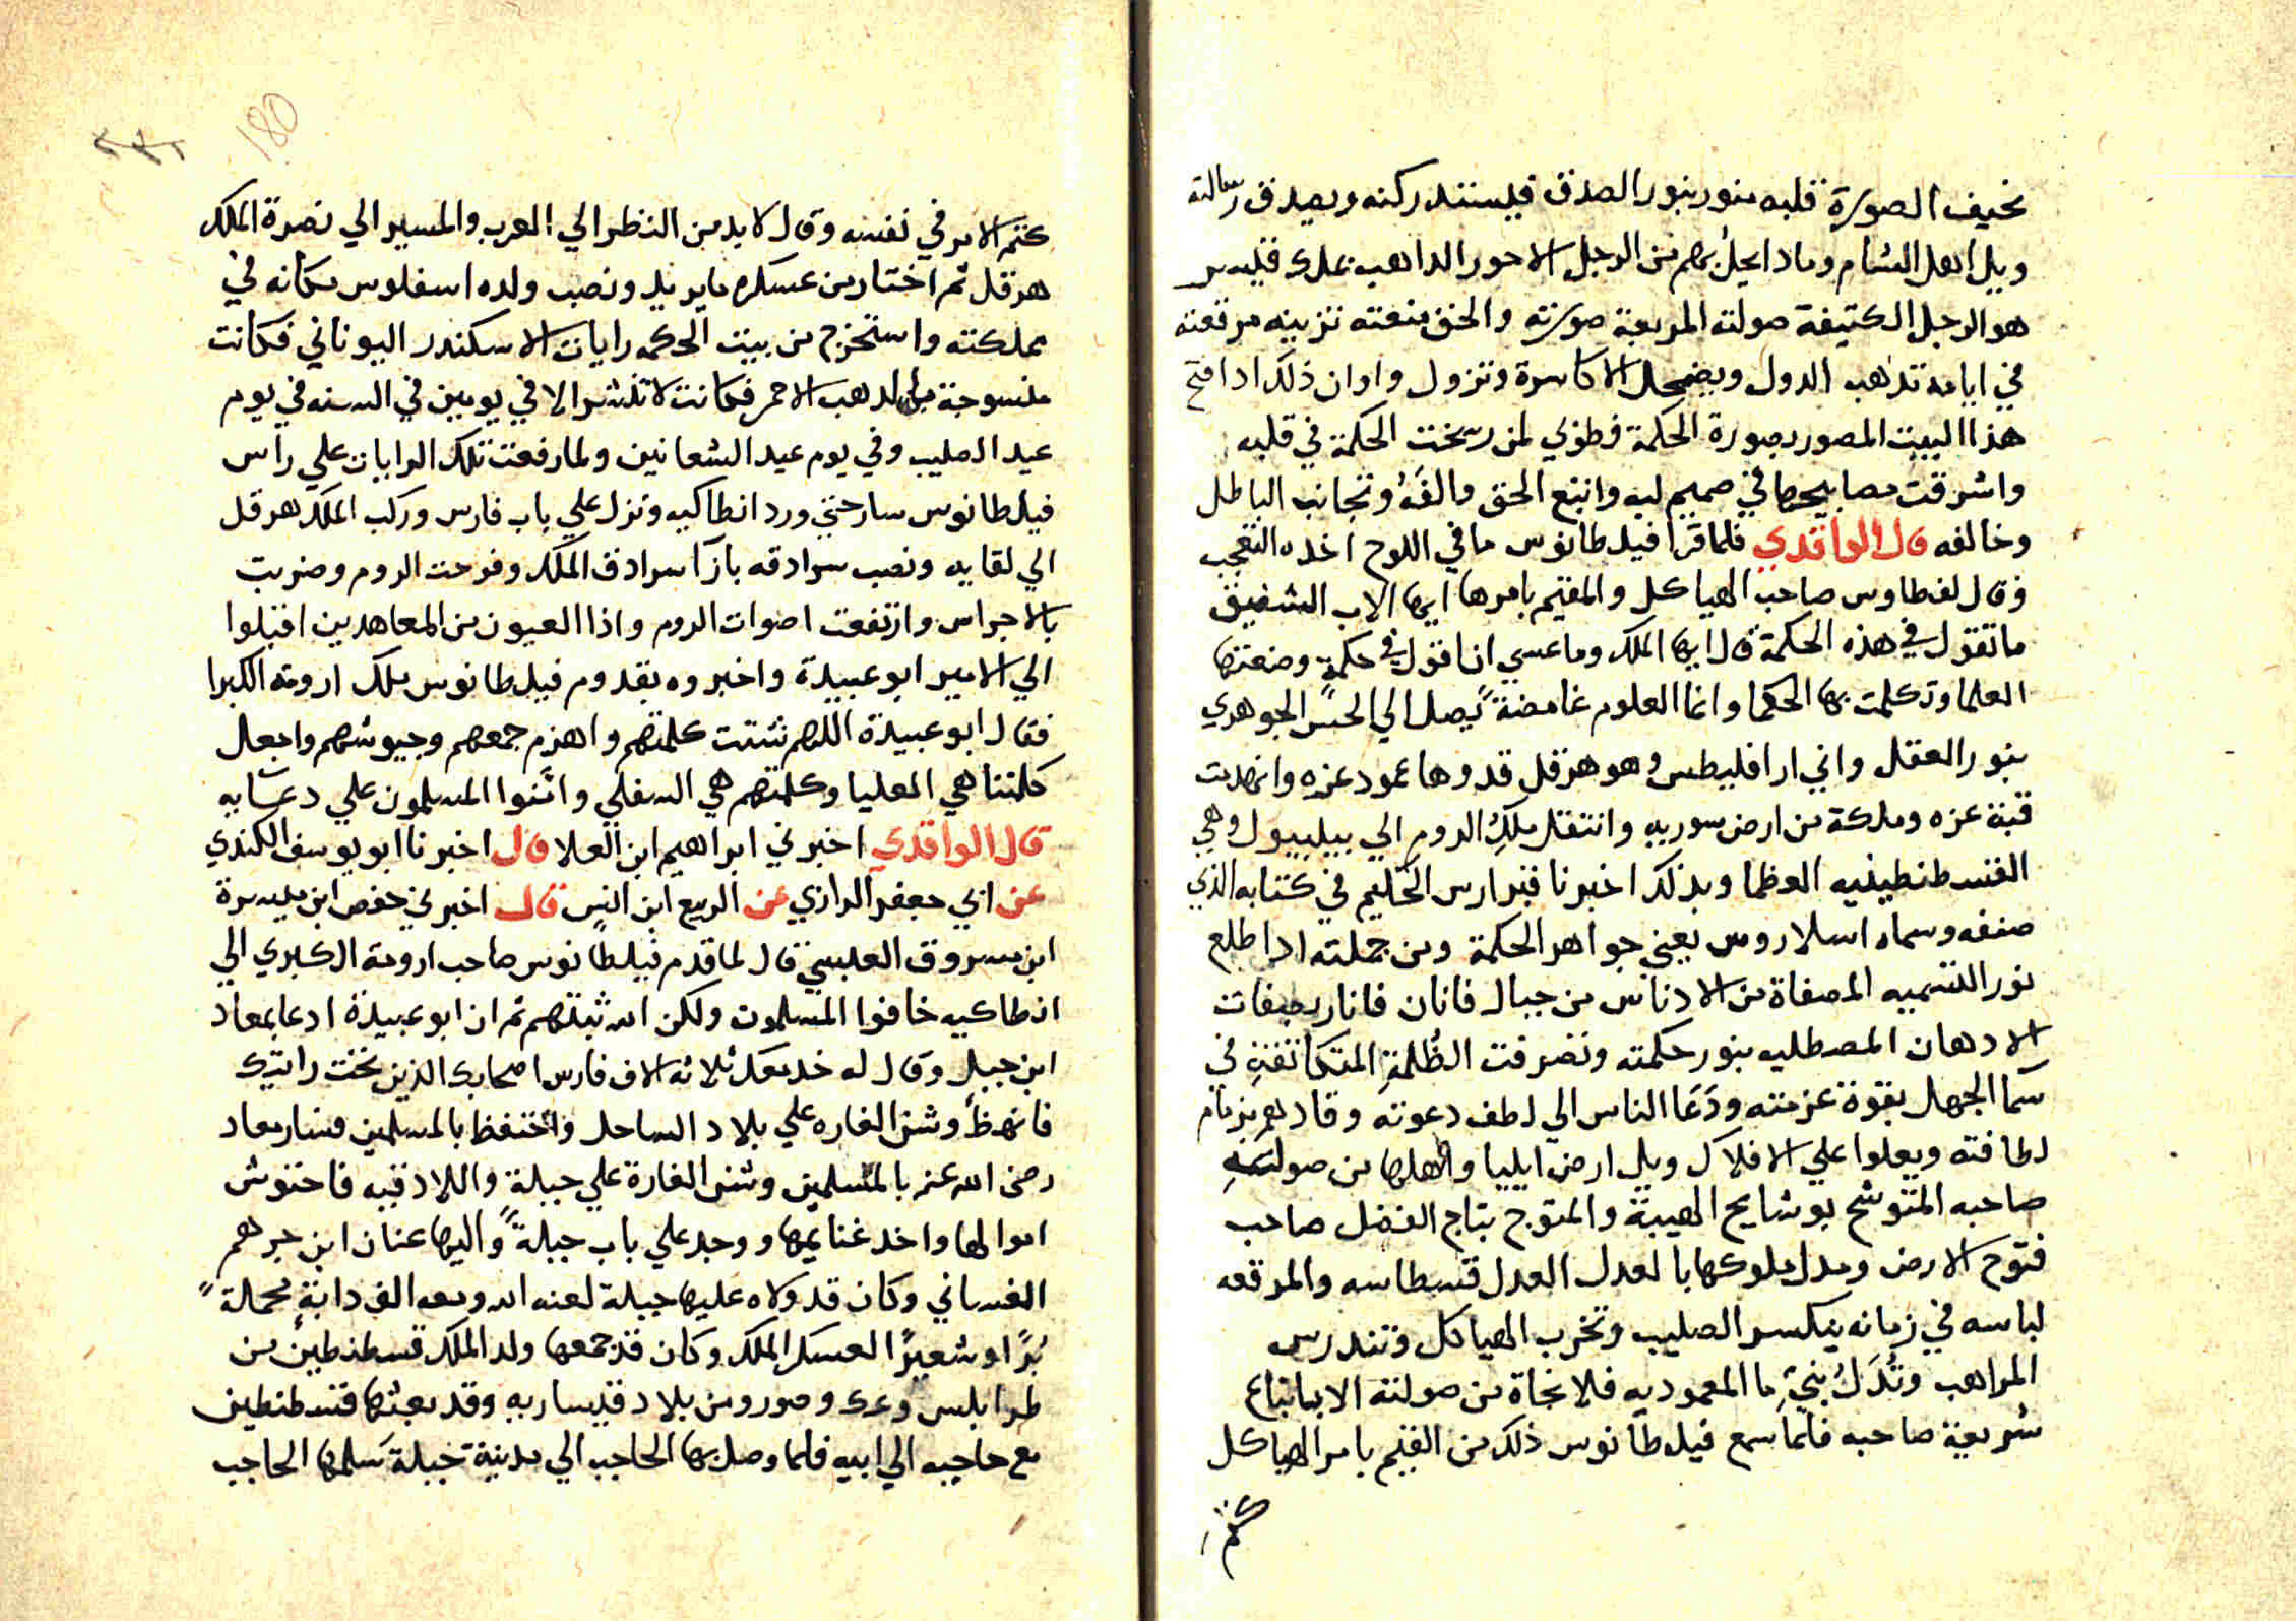 نحيف الصورة قلبه منور بنور الصدق فيستند ركنه ويصدق رسالته
ويل اهل الشام وماذا يحل بهم من الرجل الاحور الداهب بملك قيسر
هو الرجل الكثيفة صولته المربعة صورته والحق منعته تزينه مرقعته
في ايامه تذهب الدول ويضمحل الاكاسرة وتزول واوان ذلك اذا فتح
هذا البيت المصور بصورة الحكمة فطوبي لمن رسخت الحكمة في قلبه
واشرقت مصابيحها في صميم لبه واتبع الحق والفه وتجانب الباطل
وخالفه قال الواقدي فلما قرا فيلطانوس ما في اللوح اخده التعجب
وقال لفطاوس صاحب الهياكل والمقيم بامرها ايها الاب الشفيق
ما تقول في هذه الحكمة قال ايها الملك وما عسي ان اقول في حكمة وضعتها
العلما وتكلمت بها الحكما وانما العلوم غامضة يصل الي الحس الجوهري
بنور العقل واني ارا فليطس وهو هرقل قد وها عمود عزه وانهدمت
قبة عزه ومملكة من ارض سوريه وانتقل ملك الروم الي بيلبيول وهي
القسطنطينيه العظما وبذلك اخبرنا قبرارس الحكيم في كتابه الذي
صنفه وسماه اسلاروس يعني جواهر الحكمة ومن جملته اذا طلع
نور التسميه المصفاة من الادناس من جبال فاران فانار بصفات
الادهان المصطليه بنور حكمته وتصرفت الظلمة المتكاثفة في
سما الجهل بقوة عزمته ودعا الناس الي لطف دعوته وقادهم بزمام
لطافته ويعلوا علي الافلاك ويل ارض ايليا واهلها من صولته
صاحبه المتوشح بوشايح الهيبة والمتوج بتاج الفضل صاحب
فتوح الارض ومدل ملوكها بالعدل العدل قسطاسه والمرقعه
لباسه في زمانه ينكسر الصليب وتخرب الهياكل وتندرس
المراهب وتدك بنية ما المعموديه فلا نجاة من صولته الا باتباع
شريعة صاحبه فلما سمع فيلطانوس ذلك من القيم بامر الهياكل
كتم
180
كتم الامر في نفسه وقال لا بد من النظر الي العرب والمسير الي نصرة الملك
هرقل ثم اختار من عسكره ما يريد ونصب ولده اسفلوس مكانه في
مملكته واستخرج من بيت الحكمه رايات الاسكندر اليوناني فكانت
منسوجة بالدهب الاحمر فكانت لا تنشر الا في يومين في السنه في يوم
عيد الصليب وفي يوم عيد الشعانين ولما رفعت تلك الرايات علي راس
فيلطانوس سار حتي ورد انطاكيه ونزل علي باب فارس وركب الملك هرقل
الي لقايه ونصب سرادقه بازا سرادق الملك وفرحت الروم وضربت
بالاجراس وارتفعت اصوات الروم واذا العيون من المعاهدين اقبلوا
الي الامير ابو عبيدة واخبروه بقدوم فيلطانوس ملك ارومة الكبرا
فقال ابو عبيدة اللهم شتت كلمتهم واهزم جمعهم وجيوشهم واجعل
كلمتنا هي العليا وكلمتهم هي السفلي وامنوا المسلمون علي دعايه
قال الواقدي اخبرني ابراهيم ابن العلا قال اخبرنا ابو يوسف الكندي
عن ابي جعفر الرازي عن الربيع ابن انس قال اخبرني حفص ابن ميسرة
ابن مسروق العبسي قال لما قدم فيلطانوس صاحب ارومة الكبري الي
انطاكيه خافوا المسلمون ولكن الله ثبتهم ثم ان ابو عبيدة ادعا بمعاد
ابن جبل وقال له خد معك ثلاثة الاف فارس اصحابك الذين تحت رايتك
فانهظ وشن الغاره علي بلاد الساحل واحتفظ بالمسلمين فسار معاد
رضي الله عنه بالمسلمين وشن الغارة علي جبلة واللادقيه فاحتوش
اموالها واخد غنايمها ووجد علي باب جبلة واليها عنان ابن جرهم
الغساني وكان قد ولاه عليها جبلة لعنه الله ومعه الف دابة محملة
برا وشعيرا لعسكر الملك وكان قد جمعها ولد الملك قسطنطين من
طرابلس وعك وصور ومن بلاد قيساريه وقد بعثها قسطنطين
مع حاجبه الي ابيه فلما وصل بها الحاجب الي مدينة جبلة سلمها الحاجب